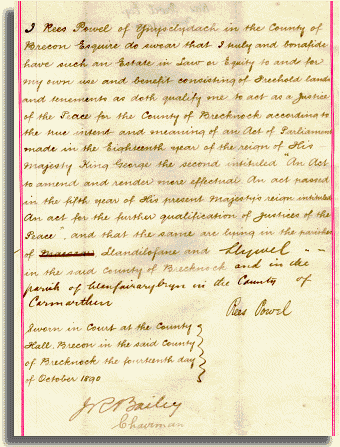 I Rees Powel of Ynysclydach in the County of
Brecon Esquire do swear that I truly and bonafide
have such an Estate in Law or Equity to and for
my own use and benefit consisting of Freehold lands
and tenements as doth qualify me to act as a Justice
of the Peace for the County of Brecknock according to
the true intent and meaning of an Act of Parliament
made in the Eighteenth year of the reign of His
Majesty King George the second intituled "An Act
to amend and render more effectual An act passed
in the fifth year of His present Majesty's reign intituled
An act for the further qualification of Justices of the
Peace" and that the same are lying in the parishes
of Llandilofane and Llywel - -
in the said County of Brecknock and in the
parish of Llanfairarybryn in the County of
Carmarthen
Rees Powel
Sworn in Court at the County
Hall, Brecon in the said County
of Brecknock the fourteenth day
of October 1890
J R Bailey
Chairman